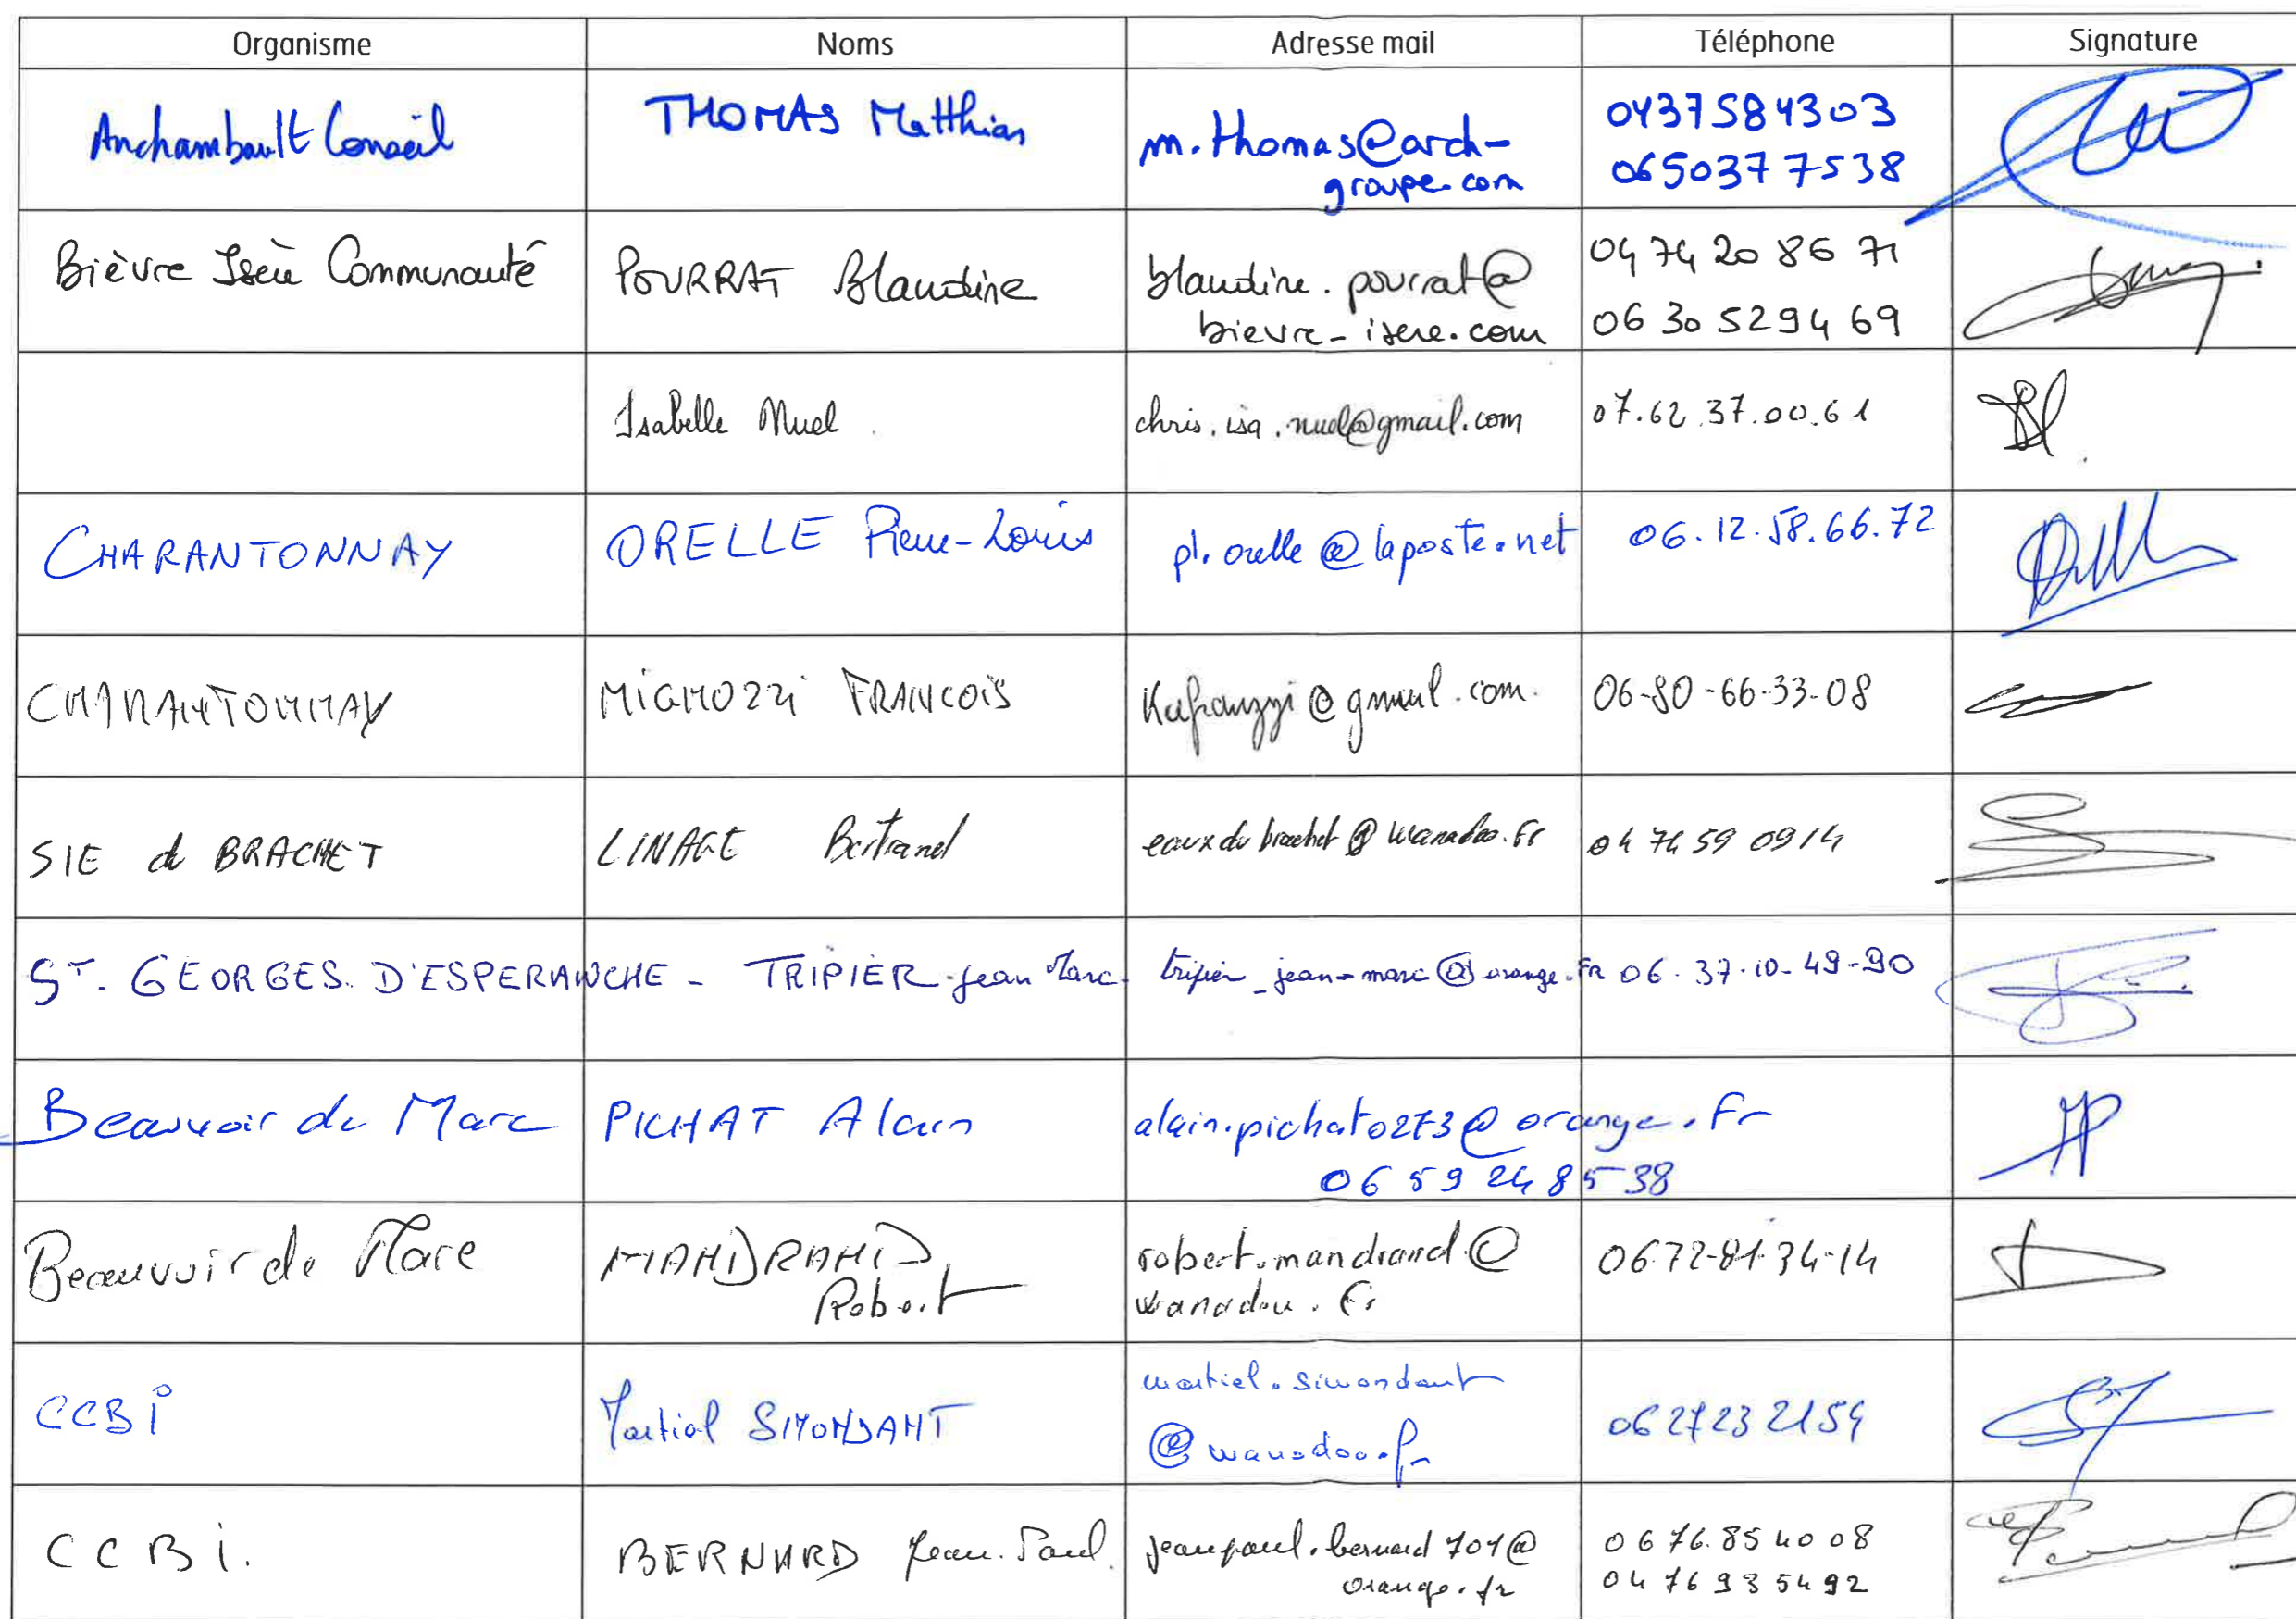 Organisme Noms Adresse mail Téléphone Signature
Archambault Conseil THOMAS Matthias m.thomas@arch- 0437584303
groupe.com 0650377538
Bièvre Isère Communauté POURRAT Blandine blandine.pourrat@ 04 74 20 86 71
bievre-isere.com 06 30 52 94 69
Isabelle Nuel chris.isa.nuel@gmail.com 07.62.37.00.61
CHARANTONNAY ORELLE Pierre-Louis pl.orelle@laposte.net 06.12.58.66.72
CHARANTONNAY MIGNOZZI FRANCOIS Kafranzzi@gmail.com. 06-80-66-33-08
SIE de BRACHET LINAGE Bertrand eauxdubrachet@wanadoo.fr 04 74 59 09 14
ST. GEORGES D'ESPERANCHE - TRIPIER Jean Marc- tripier_jean-marc@orange.FR 06.37.10-49-90
Beauvoir de Marc PICHAT Alain alain.pichat0273@orange.Fr
06 59 24 85 38
Beauvoir de Marc MANDRAND robert.mandrand@ 0672-81-34-14
Robert wanadoo.fr
CCBi Martial SIMONDANT martial.simondant 06 27 23 21 54
@wanadoo.fr
CCBi. BERNARD Jean-Paul. jeanpaul.bernard701@ 06 76.85 40 08
orange.fr 04 76 93 54 92